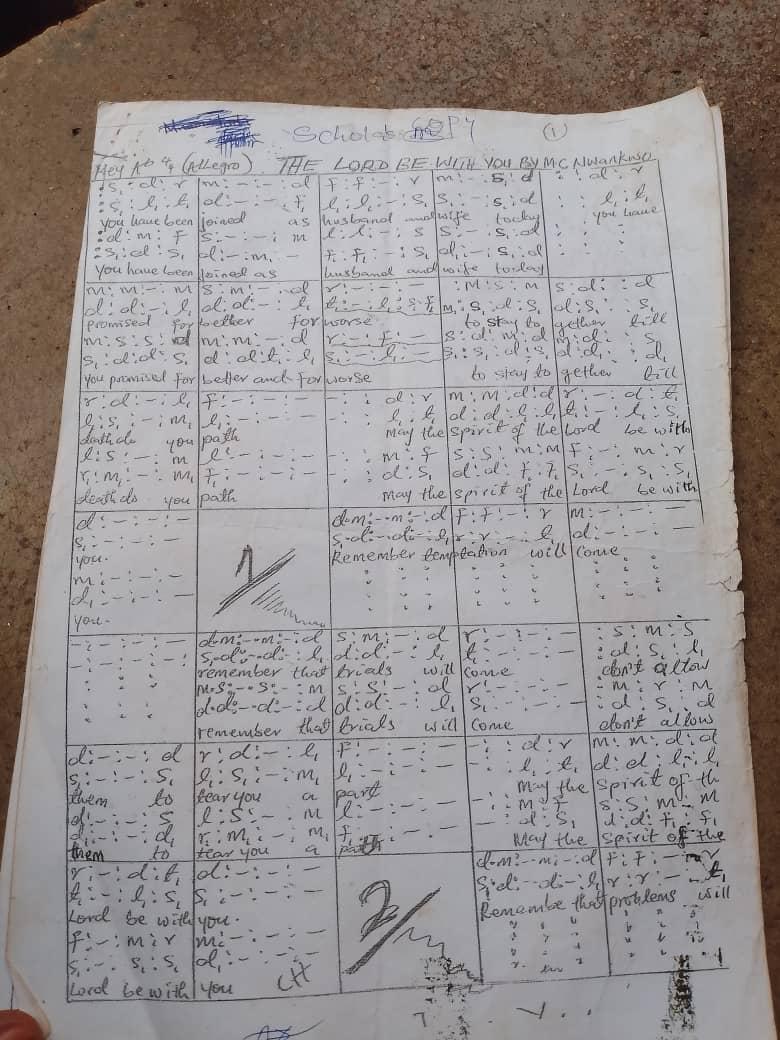 Scholas COPY
1
Key Ab 4/4 (Allegro). THE LORD BE WITH YOU BY MC Nwankwo
:s₁:d:r | m:-:-:d | f:f:-:r | m:-:s₁:d | ::d:r
:s₁:l₁:t₁ | d:-:-:l₁ | l₁:l₁:-:s₁ | s₁:-:s₁:d | : :l₁:l₁
You have been joined as husband and wife today you have
:d:m:f | s:-:-:m | l:l:-:s | s:-:s₁:d
:s₁:d:s₁ | d:-:m₁:- | f₁:f₁:-:s₁ | d₁:-:s₁:d
You have been joined as husband and wife today
m:m:-:m | s:m:-:d | r:-:-:- | :m:s:m | s:d::d
d:d:-:l₁ | d:d:-:l₁ | t₁:-:l₁:s₁:f₁ | m₁:s₁:d:s₁ | d:s₁::s₁
promised for better for worse to stay to gether till
m:s:s:d | m:m:-:d | r:-:f:- | s:d:m:d | m:d::s₁
s₁:d:d:s₁ | d:d:t₁:l₁ | s₁:-:l₁:- | s₁:s₁:d:s₁ | d:d₁::d₁
You promised for better and for worse to stay to gether till
r:d:-:l₁ | f:-:-:- | -:-:d:r | m:m:d:d | r:-:d:t₁
l₁:s₁:-:m₁ | l₁:-:-:- | -:-:l₁:t₁ | d:d:l₁:l₁ | t₁:-:l₁:s₁
death do you path May the Spirit of the Lord be with
l:s:-:m | l:-:-:- | -:-:m:f | s:s:m:m | f:-:m:r
r:m₁:-:m₁ | f₁:-:-:- | -:-:d:s₁ | d:d:f₁:f₁ | s₁:-:s₁:s₁
death do you path May the Spirit of the Lord be with
d:-:-:- | d.m:-.m:-:d | f:f:-:r | m:-:-:-
s₁:-:-:- | s₁.d:-.d:-:l₁ | r:r:-:l₁ | d:-:-:-
you. Remember temptation will come
m:-:-:-
1/
d₁:-:-:-
you.
-:-:-:- | d.m:-.m:-:d | s:m:-:d | r:-:-:- | :s:m:s
-:-:-:- | s₁.d:-.d:-:l₁ | d:d:-:l₁ | t₁:-:-:- | :d:s₁:l₁
remember that trials will come don't allow
m.s:-.s:-:m | s:s:-:d | r:-:-:- | -:m:r:m
d.d:-.d:-:d | d:d:-:l₁ | s₁:-:-:- | :d:s₁:d
remember that trials will come don't allow
d:-:-:d | r:d:-:l₁ | f:-:-:- | -:-:d:r | m:m:d:d
s₁:-:-:s₁ | l₁:s₁:-:m₁ | l₁:-:-:- | -:-:l₁:t₁ | d:d:l₁:l₁
them to tear you a part May the Spirit of th
d:-:-:s | l:s:-:m | l:-:-:- | -:-:m:f | s:s:m:m
d₁:-:-:d₁ | r:m₁:-:m₁ | f₁:-:-:- | -:-:d:s₁ | d:d:f₁:f₁
them to tear you a May the Spirit of the
r:-:d:t₁ | d:-:-:- | d.m:-.m:-:d | f:f:-:r
t₁:-:l₁:s₁ | s₁:-:-:- | s₁.d:-.d:-:l₁ | r:r:-:t₁
Lord be with you. Remembe that problems will
f:-:m:r | m:-:-:-
2/
s₁:-:s₁:s₁ | d₁:-:-:-
Lord be with you